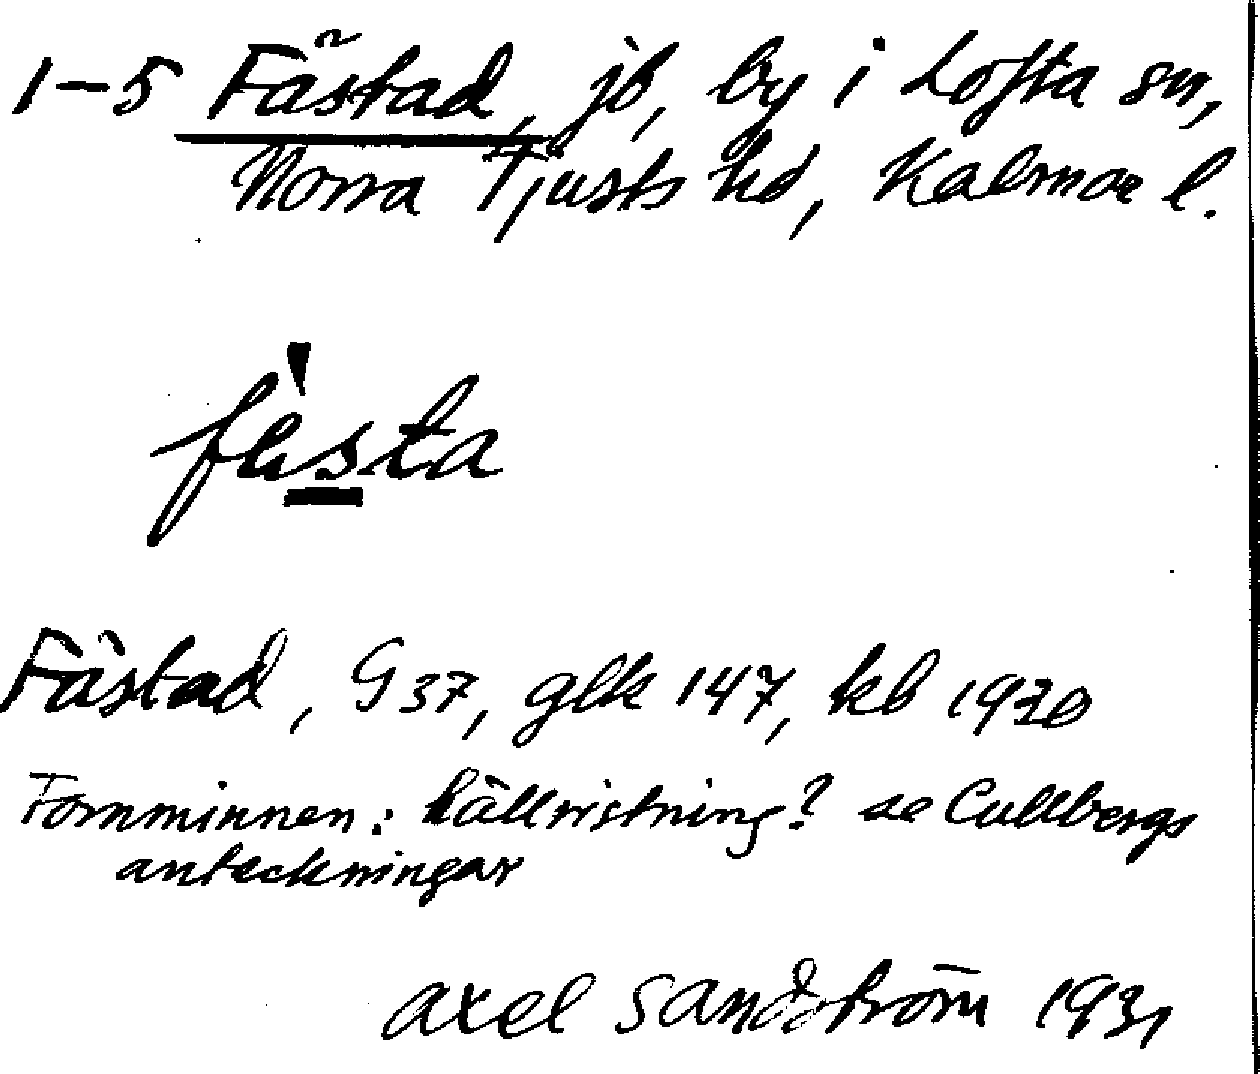 1-5 Fästad, jb, by i Lofta sn,
Norra Tjusts hd, Kalmar l.
fàsta
Fästad, G 37, glk 147, kb 1920
Fornminnen: hällristning? se Cullbergs
anteckningar
Axel Sandström 1931